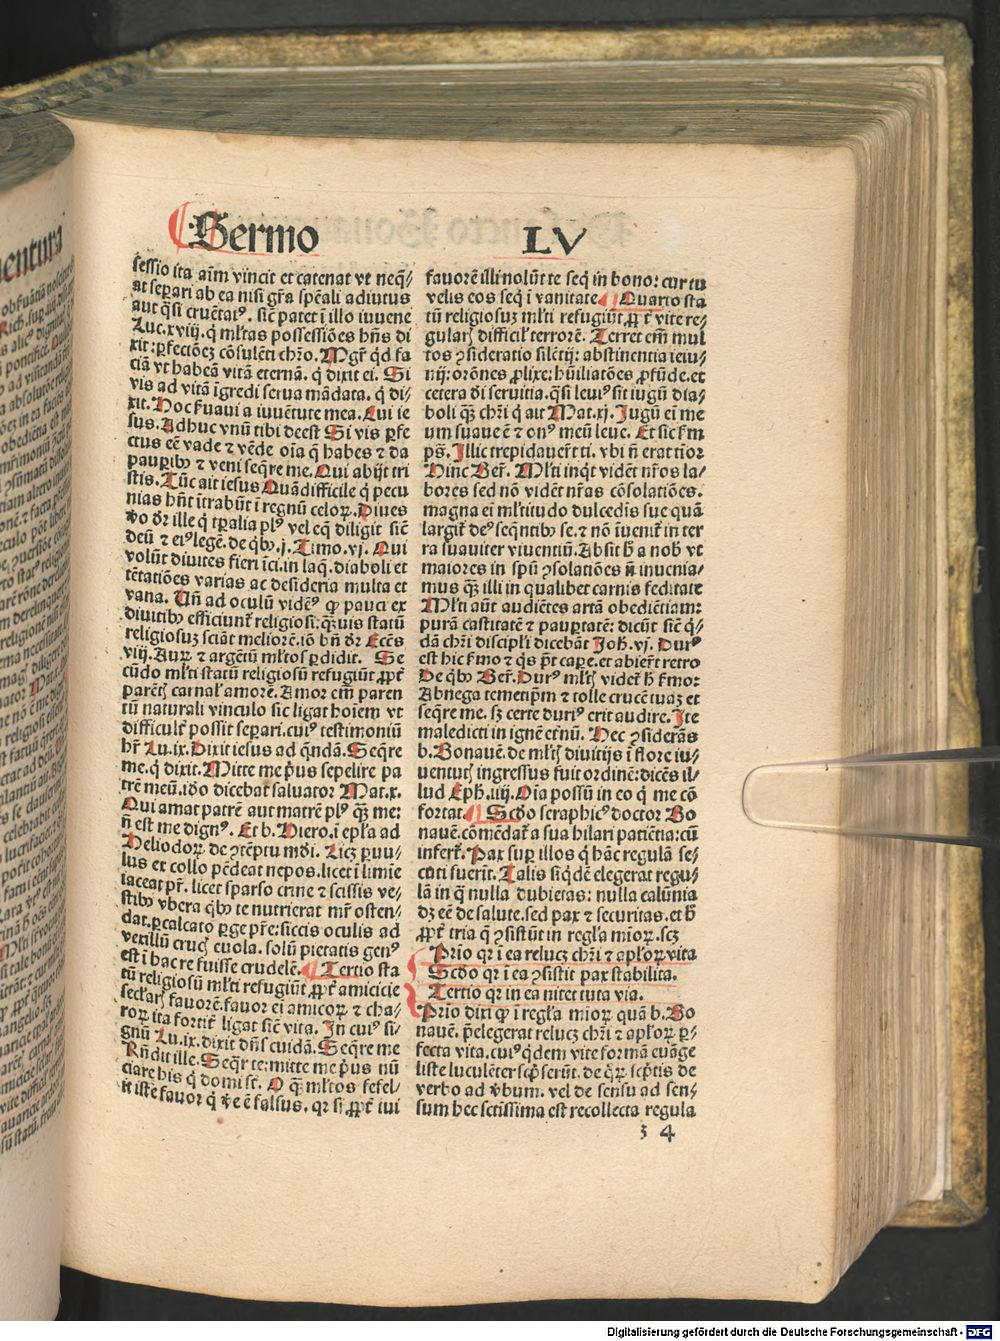 Sermo LV
sessio ita aīm vincit et catenat vt neqꝫ
at seperari ab ea nisi gr̄a spēali adiutus
aut q̄si cruētatꝰ. sic̄ patet ī illo iuuene
Luc.xviij. q̄ ml̄tas possessiōes hn̄s di
xit: ꝑfectiōeꝫ cōsulēti chr̄o. Mgr̄ qd fa
ciā vt habeā vitā eternā. q̄ dixit ei. Si
vis ad vitā īgredi serua mādata. q̄ di⸗
xit. Hoc ẜuaui a iuuētute mea. Cui ie
sus. Adhuc vnū tibi deest Si vis ꝑfe
ctus eē vade ⁊ vēde oīa q̄ habes ⁊ da
pauꝑibꝰ ⁊ veni seqͣre me. Qui abijt tri
stis. Tūc ait iesus Quādifficile q̄ pecu
nias hn̄t ītrabūt ī regnū celoꝝ. Diues
ꝟo dr̄ ille q̄ tꝑalia plꝰ vel eqͣ diligit sic̄
deū ⁊ eiꝰ legē. de qͥbꝰ.j. Timo.vj. Qui
volūt diuites fieri īci.in laq̄.diaboli et
tētatiōes varias ac desideria multa et
vana. Vn̄ ad oculū vidēꝰ ꝙ pauci ex
diuitibꝰ efficiunt̄ religiosi: qͣꝫuis statū
religiosuꝫ sciāt meliorē.iō bn̄ dr̄ Ecēs
viij. Auꝝ ⁊ argētū ml̄tos ꝑdidit. Se
cūdo ml̄ti statū religiosū refugiūt ꝓpt̄
parētꝭ carnal̓ amorē. Amor em̄ paren
tū naturali vinculo sic ligat hoīem vt
difficult̄ possit separi. cuiꝰ testimoniū
hr̄ Lu.ix. Dixit iesus ad qͥndā. Seqͣre
me. q̄ dixit. Mitte me pͥus sepelire pa
trē meū. iō dicebat saluator Mat.x.
Qui amat patrē aut matrē plꝰ qͣꝫ me:
n̄ est me dignꝰ. Et b. Hiero. ī epl̄a ad
Heliodoꝝ. de ꝯtēptu mūdi. Licꝫ ꝑuu⸗
lus ex collo pēdeat nepos. licet ī limie
iaceat pr̄. licet sparso crine ⁊ scissis ve⸗
stibꝰ vbera qͥbꝰ te nutrierat mr̄ osten⸗
dat. ꝑcalcato ꝑge pr̄e: siccis oculis ad
vexillū crucꝭ euola. solū pietatis genꝰ
est ī hac re fuisse crudelē. Tertio sta
tū religiosū ml̄ti refugiūt ꝓpt̄ amicicie
seclarꝭ fauorē. fauor ei amicoꝝ ⁊ cha⸗
roꝝ ita fortit̄ ligat sic̄ vita. In cuiꝰ si⸗
gnū Lu.ix. dixit dn̄s cuidā. Seqͣre me
Rn̄dit ille. Seqͣr te: mitte me pͥus nū
ciare his q̄ domi st̄. O qͣꝫ ml̄tos fefel⸗
lit iste fauor q̄ ꝟe ē falsus. qꝛ si ꝓpt̄ tui
fauorē illi nolūt te seqͥ in bono: cur tu
velis eos seqͥ ī vanitate. Quarto sta
tū religiosuꝫ ml̄ti refugiūt ꝓpt̄ vite re⸗
gularꝭ difficil̓ terrorē. Terret em̄ mul
tos ꝯsideratio silētij: abstinentia ieiu⸗
nij: orōnes ꝓlixe: hūiliatōes ꝓfūde. et
cetera dī seruitia. qͣsi leuiꝰ sit iugū dia⸗
boli qͣꝫ chr̄i q̄ ait Mat.xj. Jugū ei me
um suaue ē ⁊ onꝰ meū leue. Et sic ẜm
pͣs. Illic trepidauer̄t ti. vbi n̄ erat tior
Hinc Ber̄. Ml̄ti inqͥt vidēt nr̄os la⸗
bores sed nō vidēt nr̄as cōsolatiōes.
magna ei ml̄titudo dulcedis sue quā
largit̄ deꝰ seqn̄tibꝰ se. ⁊ nō īuenit̄ in ter
ra suauiter viuentiū. Absit h̄ a nob̓ vt
maiores in spū ꝯsolatiōes n̄ inuenia⸗
mus qͣꝫ illi in qualibet carnis feditate
Ml̄ti aūt audiētes artā obediētiam:
purā castitatē ⁊ paupertatē: dicūt sic̄ q̄⸗
dā chr̄i discipl̓i dicebāt Joh̓.vj. Durꝰ
est hic ẜmo ⁊ qͥs pt̄ capere. et abierūt retro
De qͥbꝰ Ber̄. Durꝰ ml̄tꝭ videt̄ h̓ ẜmo:
Abnega temetipm̄ ⁊ tolle crucē tuaꝫ et
seqͣre me. sꝫ certe duriꝰ erit audire. Ite
maledicti in ignē etnū. Hec ꝯsiderās
b. Bonauē. de ml̄tꝭ diuitijs ī flore iu⸗
uentutꝭ ingressus fuit ordinē: dicēs il⸗
lud Eph̓.iiij. Oīa possū in eo q̄ me cō
fortat. Scd̓o seraphicꝰ doctor Bo
nauē. cōmēdat̄ a sua hilari patiētia: cū
infert̄. Pax suꝑ illos q̄ hāc regulā se⸗
cuti fuerīt. Talis siqͥdē elegerat regu⸗
lā in q̄ nulla dubietas: nulla calūnia
dꝫ eē de salute. sed pax ⁊ securitas. et h̓
ꝓpt̄ tria q̄ ꝯsistūt in regl̓a mioꝝ. scꝫ
Prīo qꝛ ī ea relucꝫ chr̄i ⁊ apl̓oꝝ vita
Scd̓o qꝛ ī ea ꝯsistit pax stabilita.
Tertio qꝛ in ea nitet tuta via.
Prīo dixi ꝙ ī regl̓a mioꝝ quā b. Bo
nauē. p̄elegerat relucꝫ chr̄i ⁊ apl̓oꝝ ꝑ⸗
fecta vita. cuiꝰ qͥdem vite formā euāge
liste luculēter scp̄serūt. de qͣꝝ scp̄tis de
verbo ad ꝟbum. vel de sensu ad sen⸗
sum hec sctīssima est recollecta regula
z 4
Digitalisierung gefördert durch die Deutsche Forschungsgemeinschaft - DFG